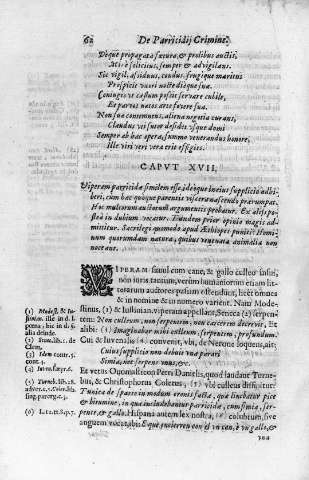 62 De Parricidij Crimine.
Vtque propagata sætura, & prolibus auctis,
Miré solicitus, semper & advigilans.
Sic vigil, assiduus, condus, frugique maritus
Prospicit vxori nocte dieque sua.
Coniugis vt castum possit servare cubile,
Et parvos natos arte fovere sua.
Non sua contemnens, aliena negotia curans,
Claudus vti suter desidet vsque domi
Semper ab hac opera, summo venerandus honore,
Ille viri veri vera erit effigies.
CAPVT XVII.
Viperam parricidæ similem esse, ideoque in eius supplicio adhiberi,
cum hæc quoque parentis viscera nascendo prærumpat.
Hoc multorum auctorum argumentis probatur. Ex ali
in dubium vocatur. Eundem prior opinio magis admittitur.
Sacrilegi quomodo apud Æthiopes puniti: Hominum
quorumdam natura, quibus venenata animalia non
nocent.
VIPERAM simul cum cane, & gallo culleo insui,
non iuris tantum, verùm humaniorum etiam litterarum
authores passim ostendunt, licet omnes
& in nomine & in numero varient. Nam Modestinus,
(1) & Iustinian. viperam appellant, Seneca (2) serpentem.
Non culleum, non serpentem, non carcerem decrevit, Et
alibi: (3) Imaginabar mihi culleum, serpentem, profundum,
Cui & Iuvenalis (4) convenit, vbi, de Nerone loquens, ait:
Cuius supplicio non debuit vna parari
Simia, nec serpens vnus,
Et vetus Onomasticon Petri Danielis, quod laudant Turnebus,
& Christophorus Colerus, (5) vbi culleus dissinitur:
Tunica de sparto in modum cronis facta, quæ linebatur pice
& bitumine, in qua includebantur parricidæ, cum simia, serpente,
& gallo. Hispana autem lex nostra, (6) colubrum, sive
anguem vocat, ibi: E que metieren con el vn can, è vn gallo, è
(1) Modest. & Iustinian.
(2) Senec. lib. 1. de
Clem.
(3) Idem contr. 5.
(4) Iuv. satyr. 8.
(5) Turneb. lib. 28.
(6) L. 12. tit. 8. p. 7.
vna